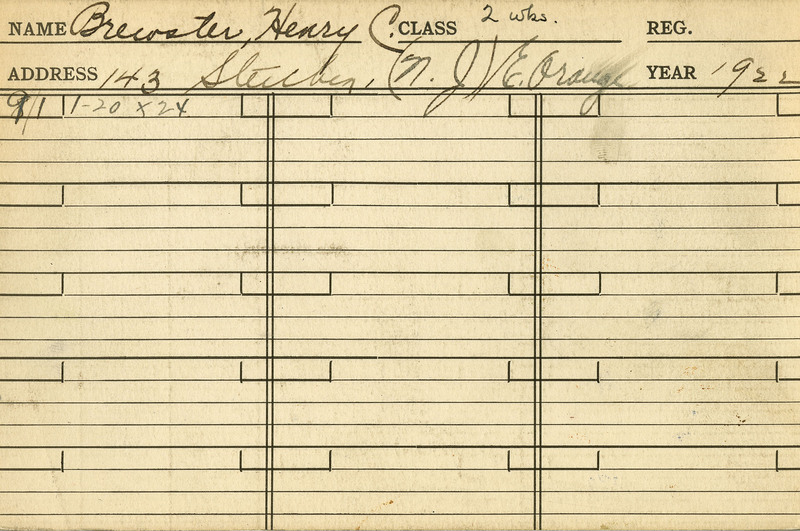 NAME Brewster, Henry C. CLASS 2 wks. REG.
ADDRESS 143 Steuben, (N. J.) E. Orange YEAR 1922
9/1 1-20 x 24